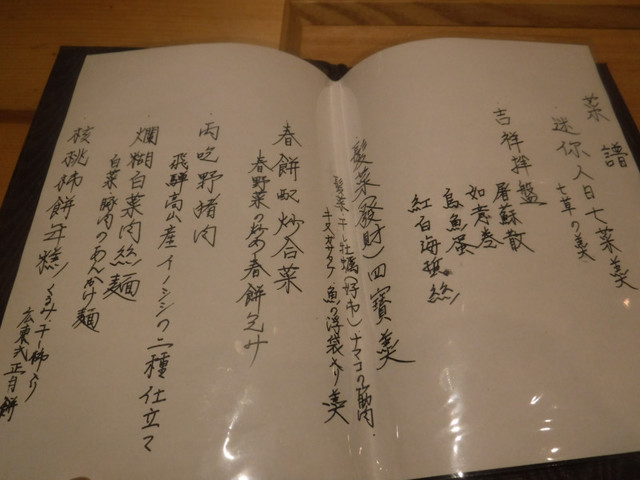 菜譜
迷你人日七菜羹
七草の羹
吉祥拌盤
屠蘇散
如意巻
烏魚蛋
紅白海蜇絲
髮菜(發財)四寶羹
髪菜 干し牡蠣(好市)ナマコの筋
キヌガサタケ 魚の浮袋入り羹
春餅配炒合菜
春野菜の炒め春餅包み
両吃野猪肉
飛騨高山産イノシシの二種仕立て
爛糊白菜肉絲麺
白菜豚肉のあんかけ麺
核桃柿餅年糕
くるみ・干し柿入り
広東式正月餅